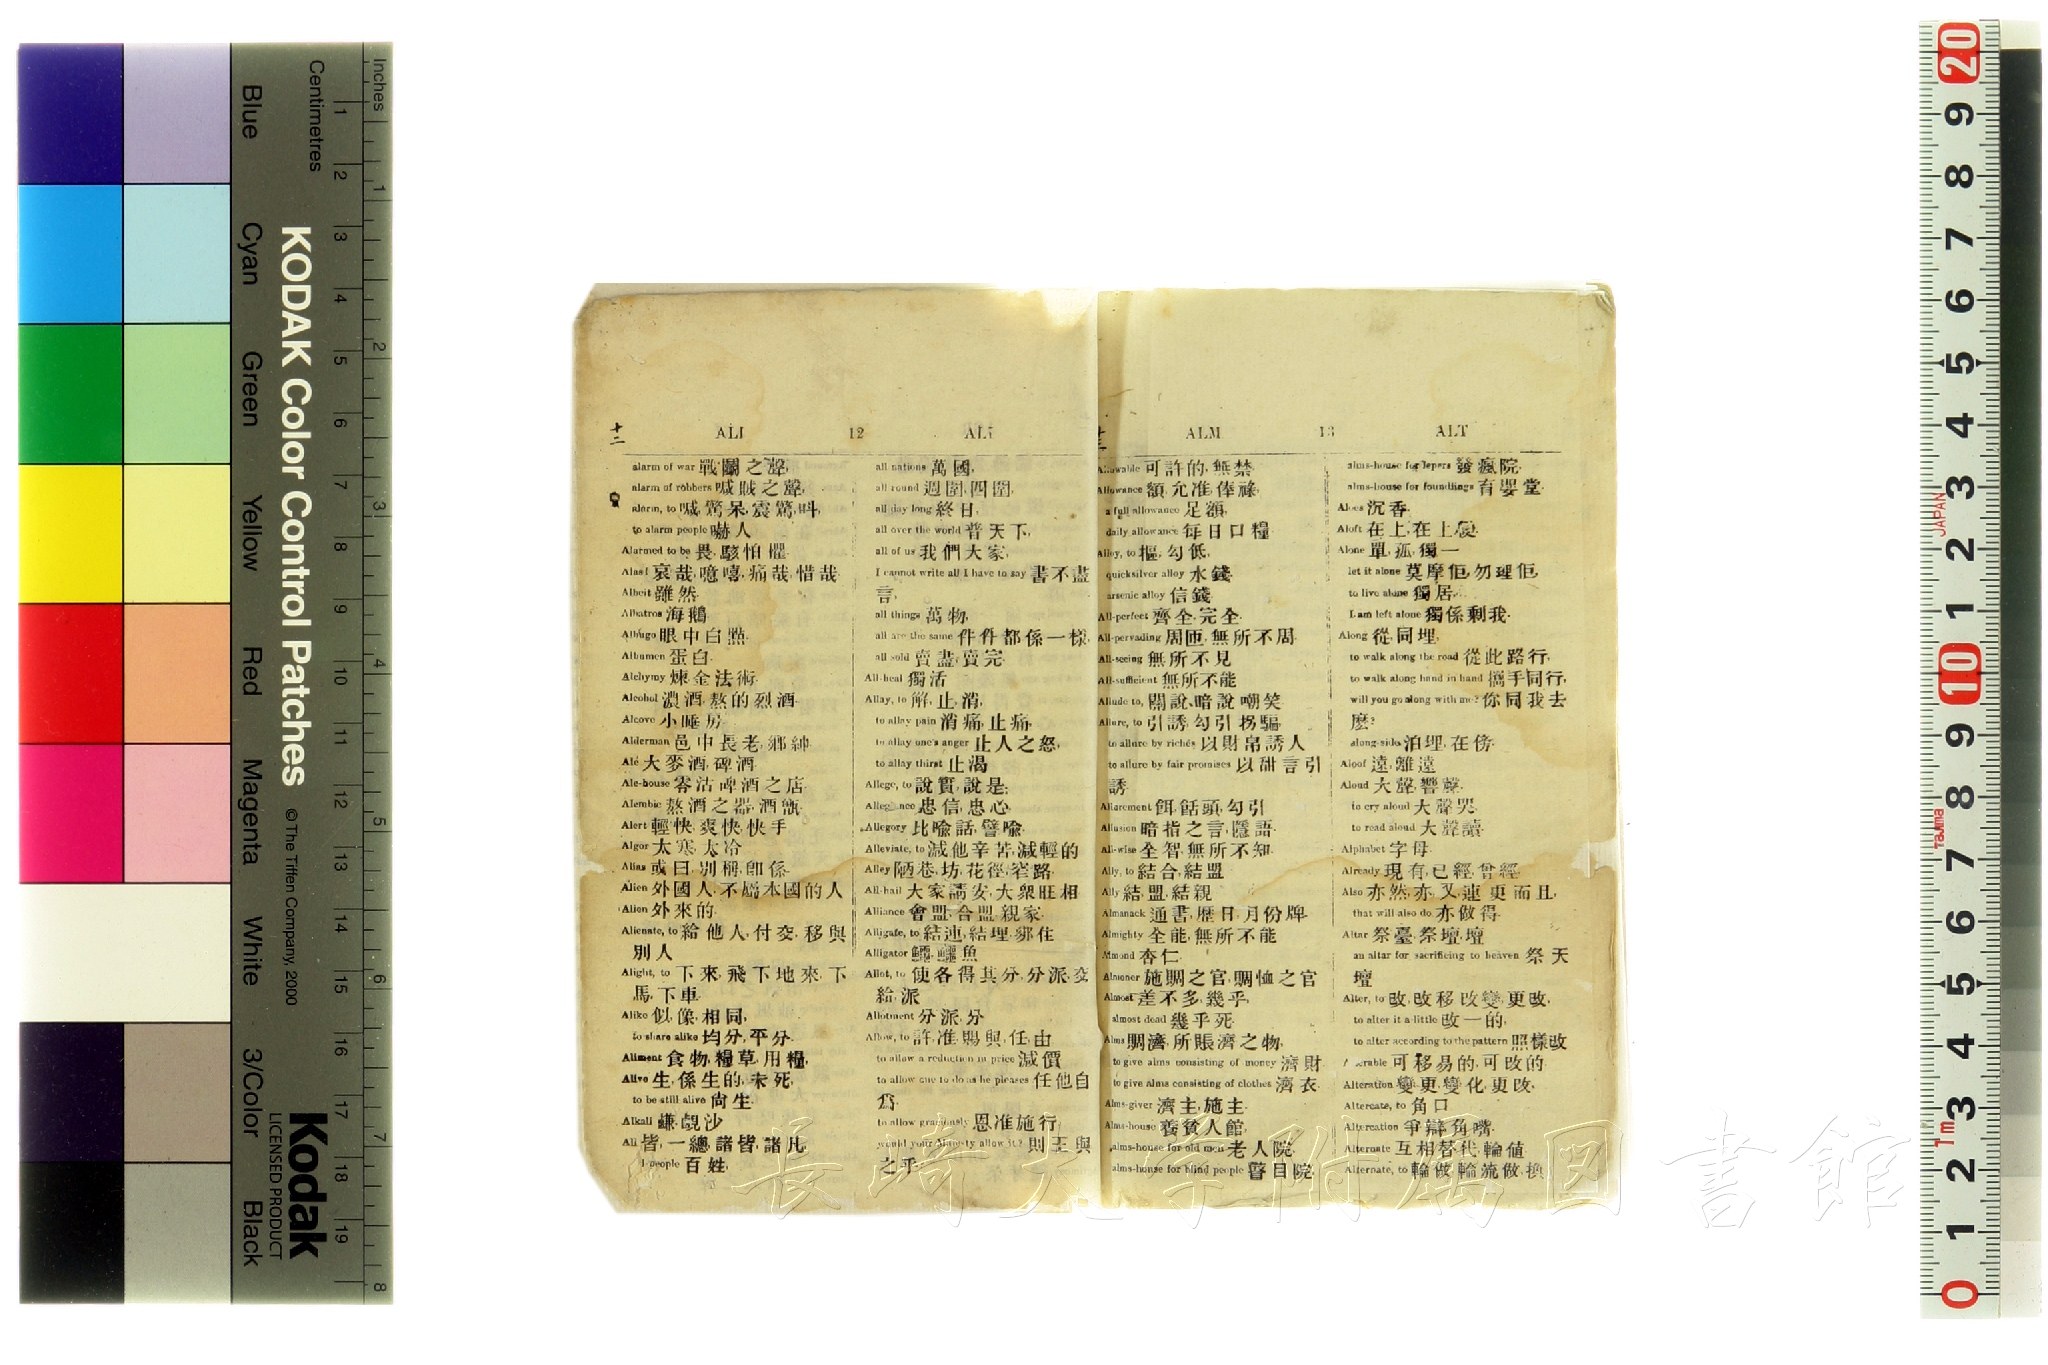 Blue Cyan Green Yellow Red Magenta White 3/Color Black
Centimetres
Inches
KODAK Color Control Patches
© The Tiffen Company, 2000
Kodak
LICENSED PRODUCT
十二 ALI 12 ALL
alarm of war 戰鬭之聲,
alarm of robbers 喊賊之聲,
alarm, to 喊驚呆,震驚,呌,
to alarm people 嚇人
Alarmed to be 畏,駭怕懼
Alas! 哀哉,噫嘻,痛哉,惜哉
Albeit 雖然
Albatros 海鵝
Albugo 眼中白點
Albumen 蛋白
Alchymy 煉金法術
Alcohol 濃酒,熬的烈酒
Alcove 小睡房
Alderman 邑中長老,鄉紳
Ale 大麥酒,碑酒
Ale-house 零沽啤酒之店
Alembic 熬酒之器,酒甑
Alert 輕快,爽快,快手
Algor 太寒,太冷
Alias 或曰,別稱,卽係
Alien 外國人,不屬本國的人
Alien 外來的
Alienate, to 給他人,付交,移與
別人
Alight, to 下來,飛下地來,下
馬,下車
Alike 似,像,相同,
to share alike 均分,平分
Aliment 食物,糧草,用糧,
Alive 生,係生的,未死,
to be still alive 尙生
Alkali 鹻,沙
All 皆,一總,諸皆,諸凡
people 百姓,
all nations 萬國,
all round 週圍,四圍,
all day long 終日,
all over the world 普天下,
all of us 我們大家,
I cannot write all I have to say 書不盡
言,
all things 萬物,
all are the same 件件都係一樣,
all sold 賣盡,賣完
All-heal 獨活
Allay, to 解,止,消,
to allay pain 消痛,止痛,
to allay one's anger 止人之怒,
to allay thirst 止渴
Allege, to 說實,說是,
Allegiance 忠信,忠心
Allegory 比喻話,譬喻,
Alleviate, to 減他辛苦,減輕的
Alley 陋巷,坊,花徑,窄路
All-hail 大家請安,大衆旺相
Alliance 會盟,合盟,親家
Alligate, to 結連,結埋,綁住
Alligator 鱷魚
Allot, to 使各得其分,分派,交
給,派
Allotment 分派,分
Allow, to 許,准,賜,與,任,由
to allow a reduction in price 減價
to allow one to do as he pleases 任他自
爲
to allow graciously 恩准施行
would your Majesty allow it? 則王與
之乎
ALM 13 ALT
Allowable 可許的,無禁
Allowance 額,允准,俸祿,
a full allowance 足額,
daily allowance 每日口糧
Alloy, to 樞,勾低,
quicksilver alloy 水錢
arsenic alloy 信錢
All-perfect 齊全,完全
All-pervading 周匝,無所不周
All-seeing 無所不見
All-sufficient 無所不能
Allude to, 關說,暗說,嘲笑
Allure, to 引誘,勾引,拐騙
to allure by riches 以財帛誘人
to allure by fair promises 以甜言引
誘
Allurement 餌,餂頭,勾引
Allusion 暗指之言,隱語
All-wise 全智,無所不知
Ally, to 結合,結盟
Ally 結盟,結親
Almanack 通書,歷日,月份牌
Almighty 全能,無所不能
Almond 杏仁
Almoner 施賙之官,賙恤之官
Almost 差不多,幾乎,
almost dead 幾乎死
Alms 賙濟,所賑濟之物,
to give alms consisting of money 濟財
to give alms consisting of clothes 濟衣
Alms-giver 濟主,施主
Alms-house 養貧人館,
alms-house for old men 老人院
alms-house for blind people 瞽目院
alms-house for lepers 發瘋院
alms-house for foundlings 育嬰堂
Aloes 沉香
Aloft 在上,在上處
Alone 單,孤,獨一
let it alone 莫摩佢,勿理佢,
to live alone 獨居
I am left alone 獨係剩我
Along 從,同埋,
to walk along the road 從此路行,
to walk along hand in hand 攜手同行,
will you go along with me? 你同我去
麽?
along-side 泊埋,在傍
Aloof 遠,離遠
Aloud 大聲,響聲
to cry aloud 大聲哭
to read aloud 大聲讀
Alphabet 字母
Already 現有,已經,曾經
Also 亦然,亦,又,連,更,而且,
that will also do 亦做得
Altar 祭臺,祭壇,壇
an altar for sacrificing to heaven 祭天
壇
Alter, to 改,改移,改變,更改,
to alter it a little 改一的,
to alter according to the pattern 照樣改
可移易的,可改的
Alteration 變更,變化,更改,
Altercate, to 角口
Altercation 爭辯,角嘴
Alternate 互相替代,輪值
Alternate, to 輪做,輪流做,換
長崎大学附属図書館
JAPAN
Tajima
1m